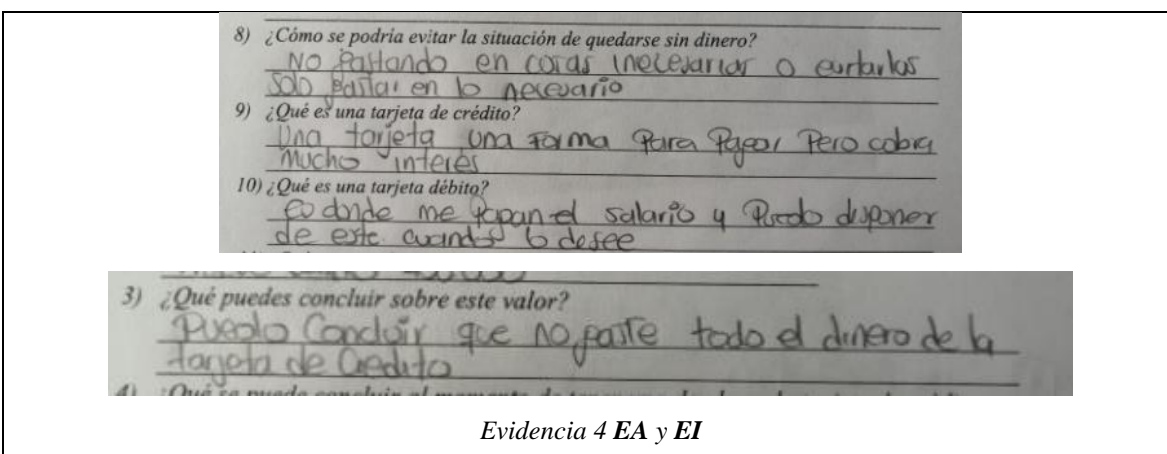 8) ¿Cómo se podría evitar la situación de quedarse sin dinero?
No gastando en cosas inecesarias o
solo gastar en lo necesario
9) ¿Qué es una tarjeta de crédito?
Una tarjeta una forma para Pagar Pero cobra
mucho interés
10) ¿Qué es una tarjeta débito?
Es donde me pagan el salario y Puedo disponer
de este cuando lo desee
3) ¿Qué puedes concluir sobre este valor?
Puedo Concluir que no gaste todo el dinero de la
tarjeta de Credito
4) ¿Qué se puede concluir al momento de
Evidencia 4 EA y EI